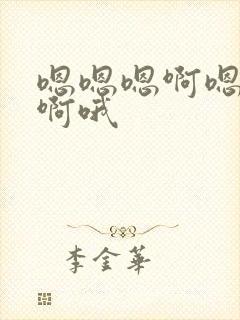 嗯嗯嗯啊嗯
啊哦
李金華